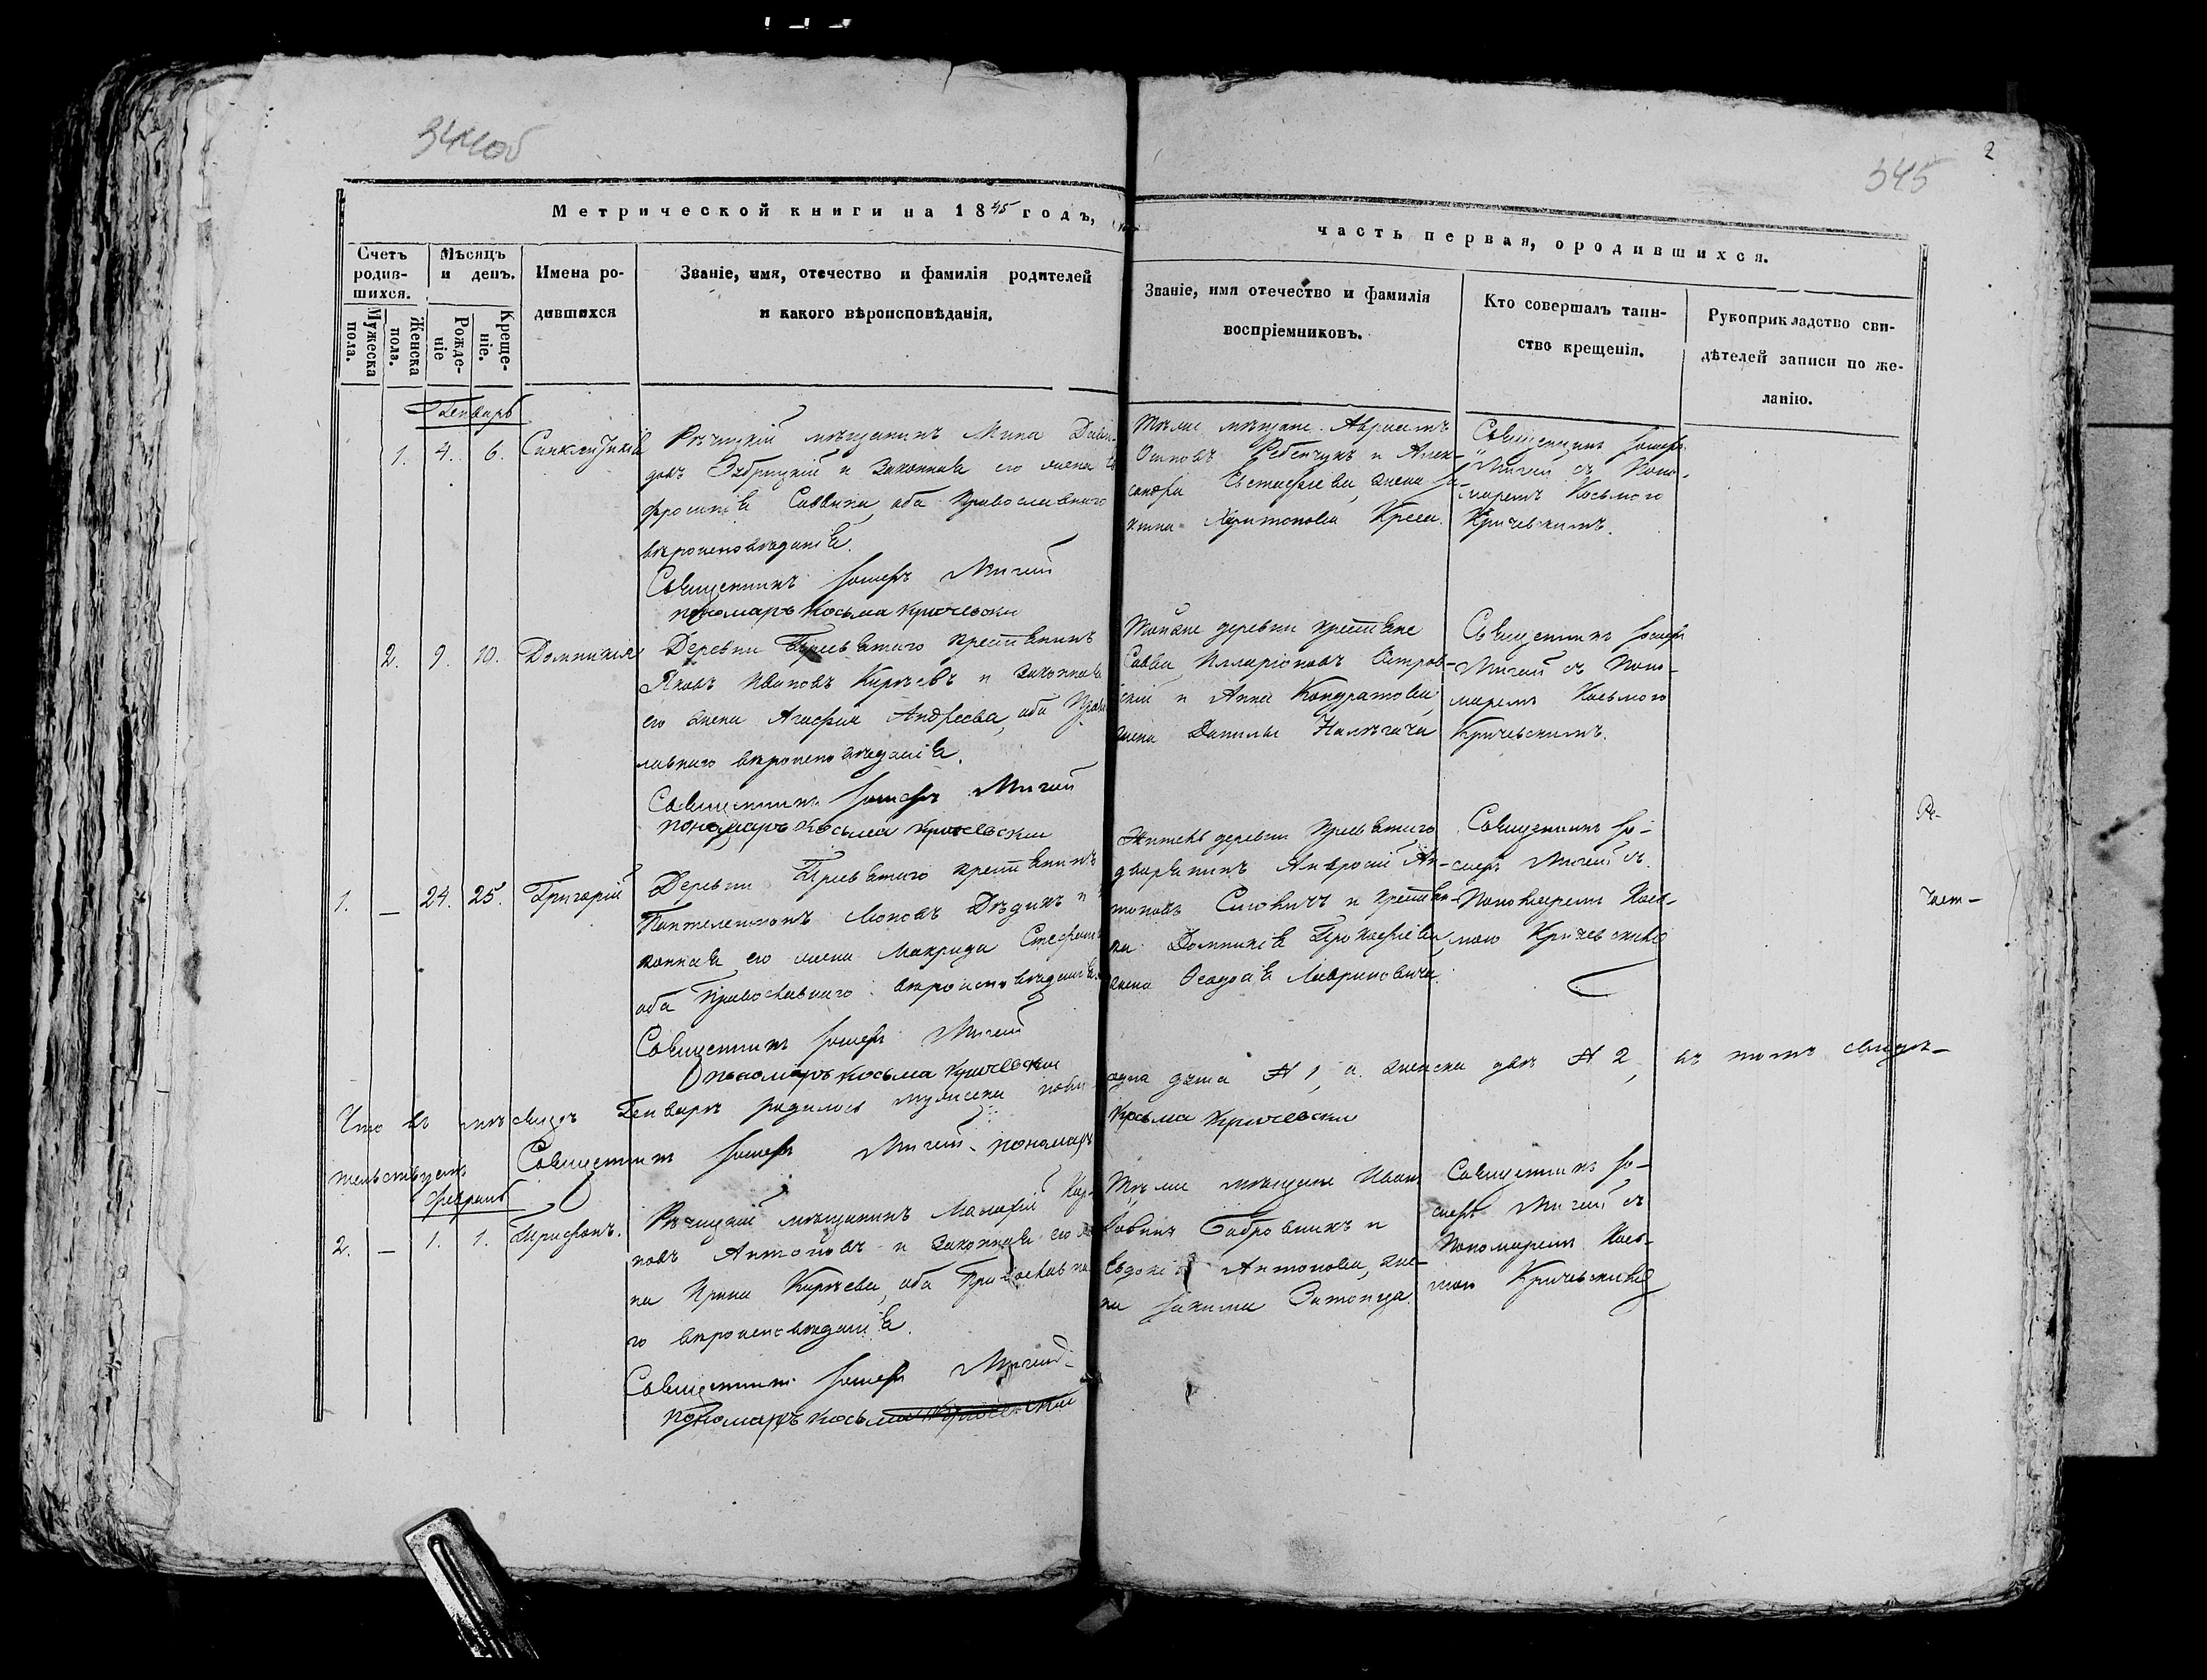 344об
345
2
Метрической книги на 1845 годъ,
часть первая, о родившихся.
Счетъ родив-
шихся.
Мужеска пола.
Женска пола.
Мѣсяцъ и день.
Рожде-
ніе
Креще-
ніе.
Имена ро-
дившихся
Званіе, имя, отечество и фамилія родителей
и какого вѣроисповѣданія.
Званіе, имя отечество и фамилія
воспріемниковъ.
Кто совершалъ таин-
ство крещенія.
Рукоприкладство сви-
дѣтелей записи по же-
ланію.
Генварь
1. 4. 6. Синклитикія
Рѣчицкій мѣщанинъ Мина Дави-
довъ и законная его жена Ев
фросинія Саввина, оба православнаго
вѣроисповѣданія.
Священникъ Іосифъ Мигай
пономаръ Косьма Кричевски
Тѣже мѣщане Авраамъ
Осиповъ и Алек-
сандра Евстафіева, жена Іа-
кима Харитонова
Священникъ Іосифъ
Мигай съ Поно-
маремъ Косьмою
Кричевскимъ.
2. 9. 10. Домникія
Деревни крестьянинъ
Яковъ Ивановъ Кирѣевъ и законная
его жена Агафія Андреева, оба Право
лавнаго вѣроисповѣданія.
Священникъ Іосифъ Мигай
пономаръ Косьма Кричевски
Тойже деревни крестьяне
Савва Илларіоновъ Остров-
скій и Анна Кондратова,
жена Данилы
Священникъ Іосифъ
Мигай съ Поно-
маремъ Косьмою
Кричевскимъ.
1. — 24. 25. Григорій
Деревни крестьянинъ
Пантелеимонъ Дѣдикъ и
конная его жена Макрида
оба Православнаго вѣроисповѣданія.
Священникъ Іосифъ Мигай
пономаръ Косьма Кричевски
Житель деревни
дворянинъ Амвросій Ан-
тоновъ и крестьян-
ка Домникія Прокофіева,
жена Лавриновича.
Священникъ Іо-
сифъ Мигай съ
Пономаремъ Кось-
мою Кричевскимъ
Что въ Генварѣ родилось мужеска пола
одна душа № 1, а женска двѣ № 2, въ томъ свидѣ-
тельствуемъ
Священникъ Іосифъ Мигай пономаръ
Косьма Кричевски
Февраль
2. — 1. 1. Трифонъ.
Рѣчицкій мѣщанинъ
новъ Антоновъ и законная его же
на Ирина Кирѣева, оба Православна
го вѣроисповѣданія.
Священникъ Іосифъ Мигай
пономаръ Косьма Кричевски
Тѣже мѣщане Иванъ
Бобровникъ и
Евдокія Антонова, же-
на Іакима
Священникъ Іо-
сифъ Мигай съ
Пономаремъ Кось-
мою Кричевскимъ